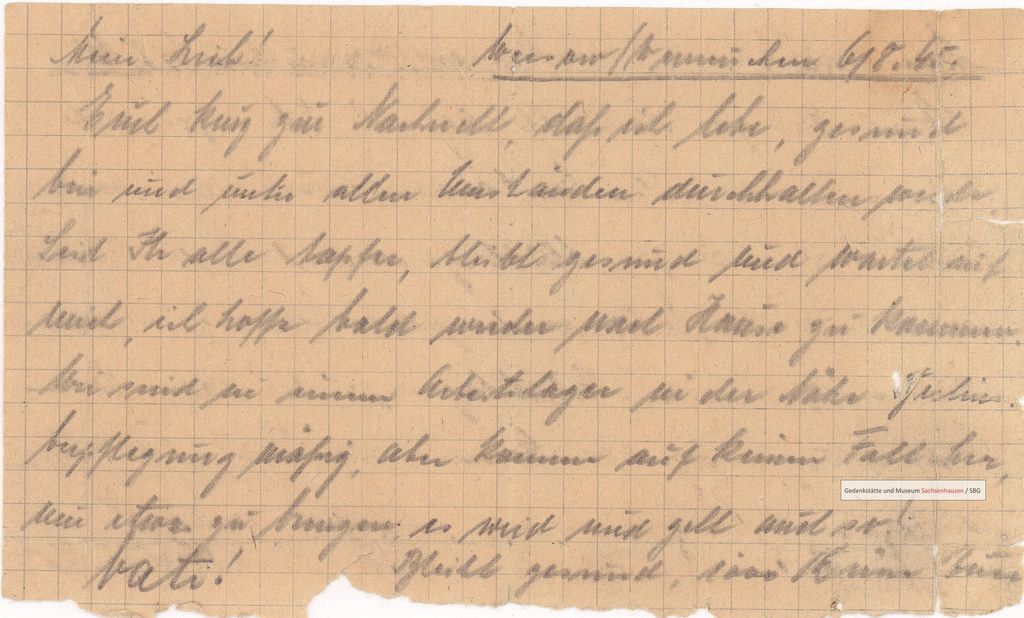 Mein Lieb! Weesow/Werneuchen 6/8.45.
Euch kurz zur Nachricht, daß ich lebe, gesund
bin und unter allen Umständen durchhalten werde
Seid Ihr alle tapfer, bleibt gesund und wartet auf
mich, ich hoffe bald wieder nach Hause zu kommen.
Wir sind in einem Arbeitslager in der Nähe Berlins.
Verpflegung mäßig, aber komme auf keinen Fall her,
um etwas zu bringen, es wird und geht auch so!
Vati! Bleibt gesund, 1000 Küsse Euer
Gedenkstätte und Museum Sachsenhausen / SBG